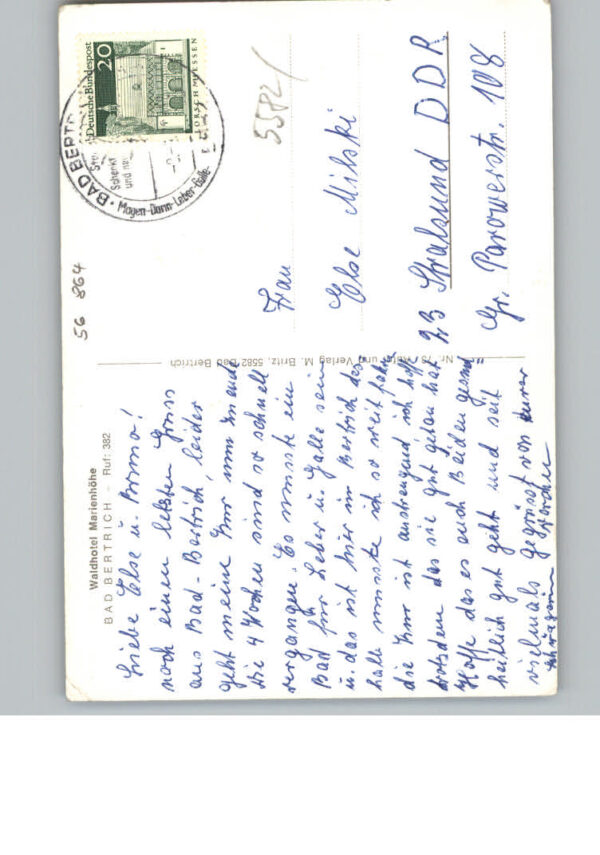 Waldhotel Marienhöhe
BAD BERTRICH - Ruf: 382
Liebe Else u. Bruno!
noch einen letzten Gruss
aus Bad-Bertrich, leider
geht meine Kur, zum Ende
die 4 Wochen sind so schnell
vergangen. Es musste ein
Bad für Leber u. Galle sein
u. das ist hier in Bertrich des
halb musste ich so weit fahren
die Kur ist anstrengend ich hoffe
trotzdem das sie gut getan hat
Hoffe das es euch Beiden gesund
heitlich gut geht und seid
vielmals gegrüsst von eurer
Schwägerin
Nr. 75 und Verlag M. Britz, 5582 Bad Bertrich
56 864
20
Deutsche Bundespost
LORSCH HESSEN
BAD BERTR
Schenkt
und
Magen-Darm-Leber-Galle
5582/
Frau
Else Milski
23 Stralsund DDR
Gr. Parowerstr. 108